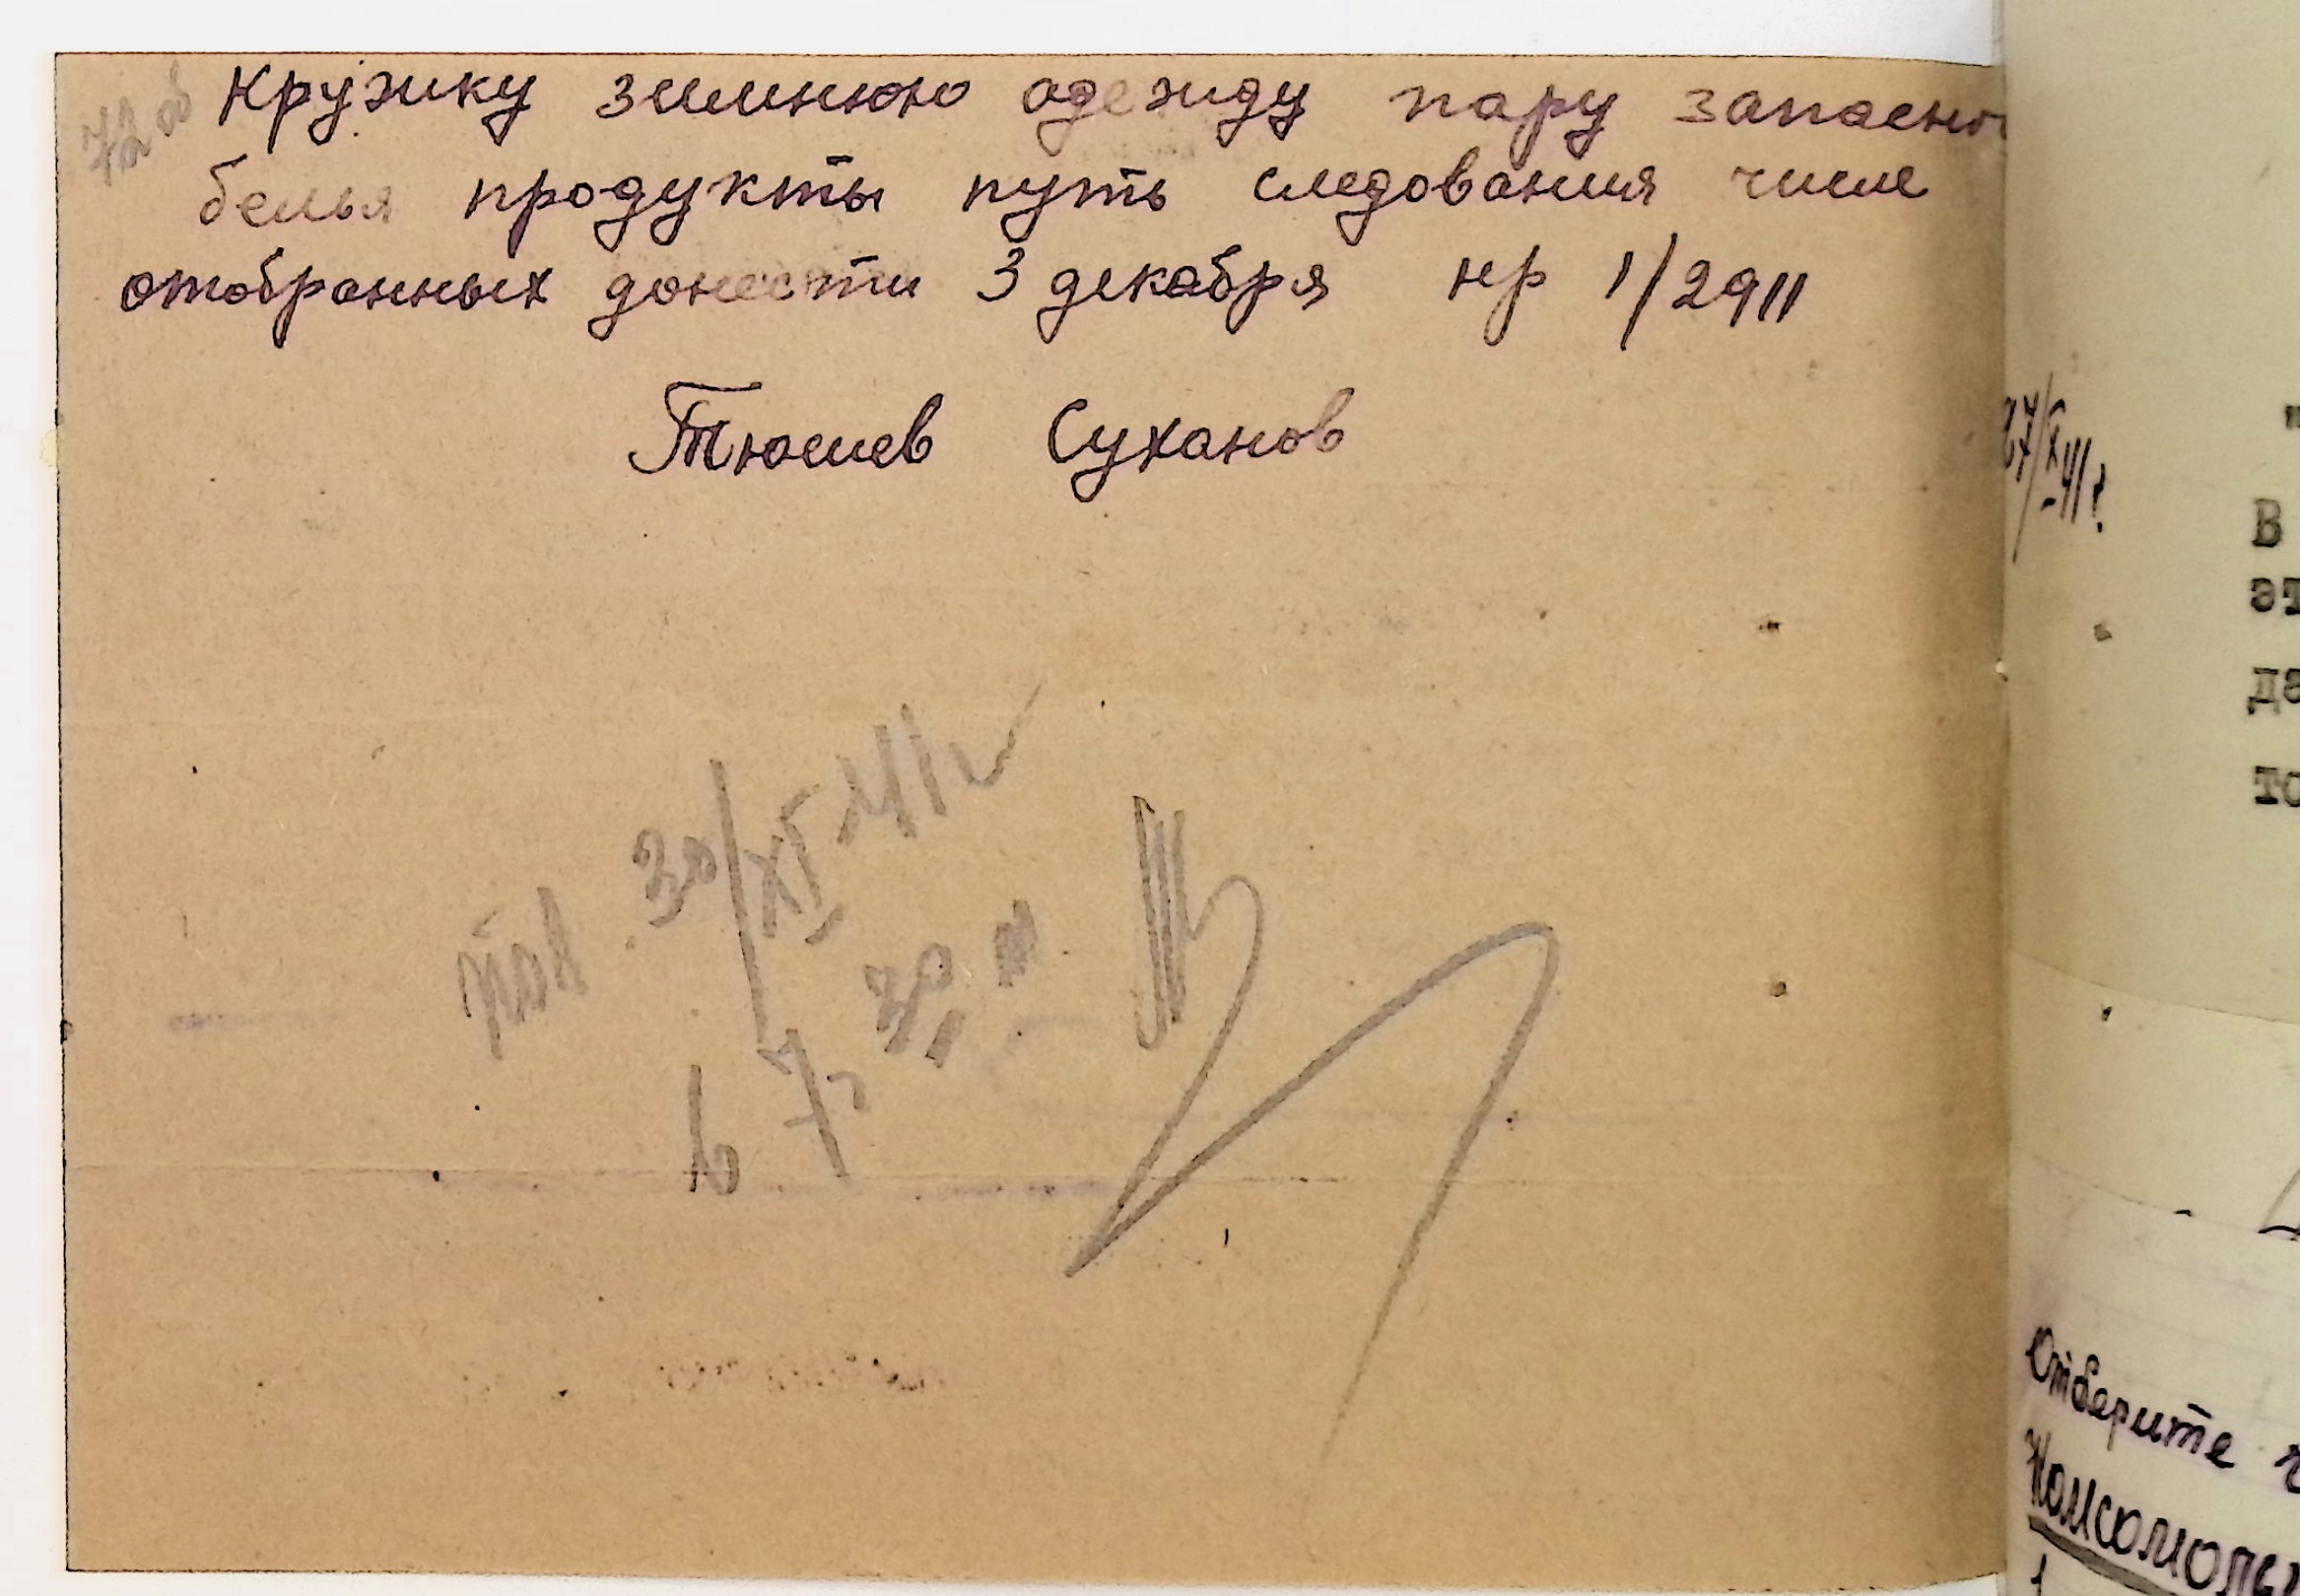 72 об
Кружку зимнюю одежду пару запасно
белья продукты путь следования числе
отобранных донести 3 декабря нр 1/2911
Тюшев Суханов
30/XI-41г
в 7 30 м
27/X-41г.
В
эт
да
то
Отберите
Комсомоль
1